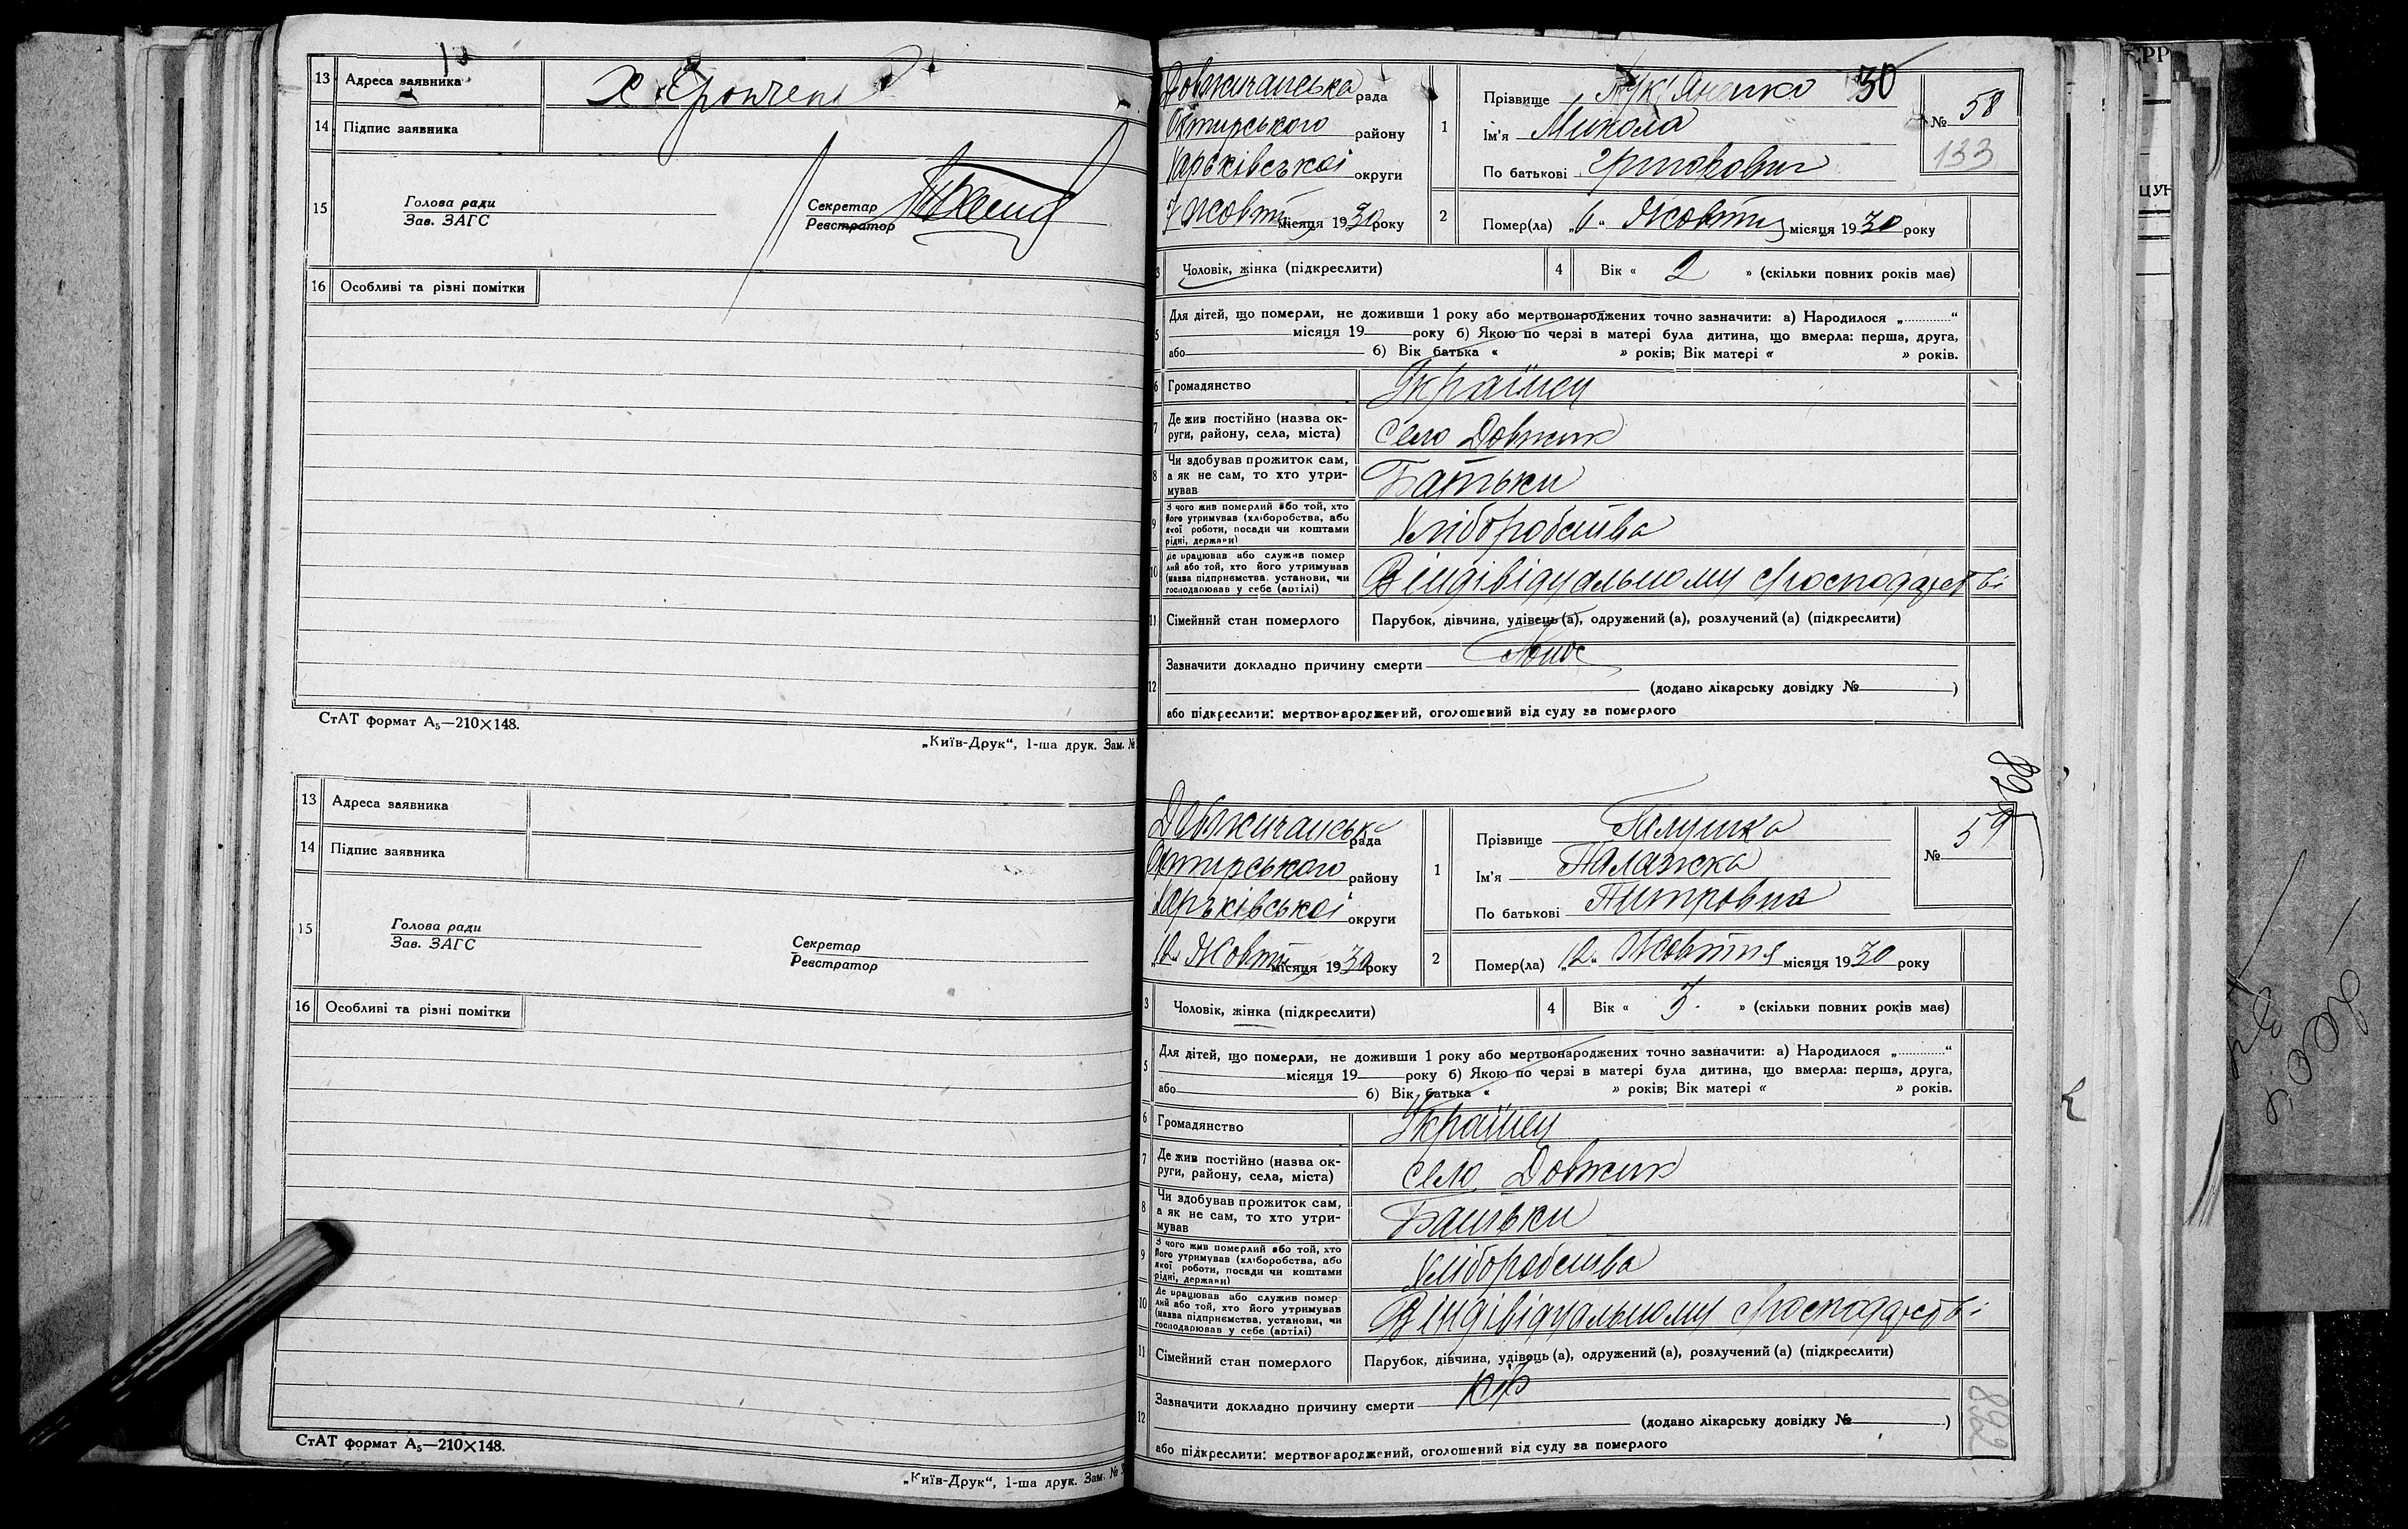 13 Адреса заявника
14 Підпис заявника
15 Голова ради
Зав. ЗАГС
Секретар
Реєстратор
16 Особливі та різні помітки
СтАТ формат А5—210×148.
„Київ-Друк“, 1-ша друк. Зам. №
13 Адреса заявника
14 Підпис заявника
15 Голова ради
Зав. ЗАГС
Секретар
Реєстратор
16 Особливі та різні помітки
СтАТ формат А5—210×148.
„Київ-Друк“, 1-ша друк. Зам. №
Довжичанська рада
Охтирського району
Харьківської округи
7 Жовтн місяця 1930 року
30
1 Прізвище Лук'яненко
Ім'я Микола
По батькові Григорович
№ 58
133
2 Помер(ла) „6“ Жовтня місяця 1930 року
3 Чоловік, жінка (підкреслити)
4 Вік « 2 » (скільки повних років має)
5 Для дітей, що померли, не доживши 1 року або мертвонароджених точно зазначити: а) Народилося „............“
місяця 19 року б) Якою по черзі в матері була дитина, що вмерла: перша, друга,
або б) Вік батька « » років; Вік матері « » років.
6 Громадянство Українец
7 Де жив постійно (назва ок-
руги, району, села, міста) село Довжик
8 Чи здобував прожиток сам,
а як не сам, то хто утри-
мував Батьки
9 З чого жив померлий або той, хто
його утримував (хліборобства, або
якої роботи, посади чи коштами
рідні, держави) Хліборобства
10 Де працював або служив помер
лий або той, хто його утримував
(назва підприємства, установи, чи
господарював у себе (артілі) В індівідуальному господарстві
11 Сімейний стан померлого Парубок, дівчина, удівець (а), одружений (а), розлучений (а) (підкреслити)
12 Зазначити докладно причину смерти
(додано лікарську довідку № )
або підкреслити: мертвонароджений, оголошений від суду за померлого
Довжичанська рада
Охтирського району
Харьківської округи
„12“ Жовтн місяця 1930 року
1 Прізвище Галушка
Ім'я Палажка
По батькові Питровна
№ 59
2 Помер(ла) „12“ Жовтня місяця 1930 року
3 Чоловік, жінка (підкреслити)
4 Вік « 3 » (скільки повних років має)
5 Для дітей, що померли, не доживши 1 року або мертвонароджених точно зазначити: а) Народилося „............“
місяця 19 року б) Якою по черзі в матері була дитина, що вмерла: перша, друга,
або б) Вік батька « » років; Вік матері « » років.
6 Громадянство Українец
7 Де жив постійно (назва ок-
руги, району, села, міста) село Довжик
8 Чи здобував прожиток сам,
а як не сам, то хто утри-
мував Батьки
9 З чого жив померлий або той, хто
його утримував (хліборобства, або
якої роботи, посади чи коштами
рідні, держави) Хліборобства
10 Де працював або служив помер
лий або той, хто його утримував
(назва підприємства, установи, чи
господарював у себе (артілі) В індівідуальному господарстві
11 Сімейний стан померлого Парубок, дівчина, удівець (а), одружений (а), розлучений (а) (підкреслити)
12 Зазначити докладно причину смерти кір
(додано лікарську довідку № )
або підкреслити: мертвонароджений, оголошений від суду за померлого